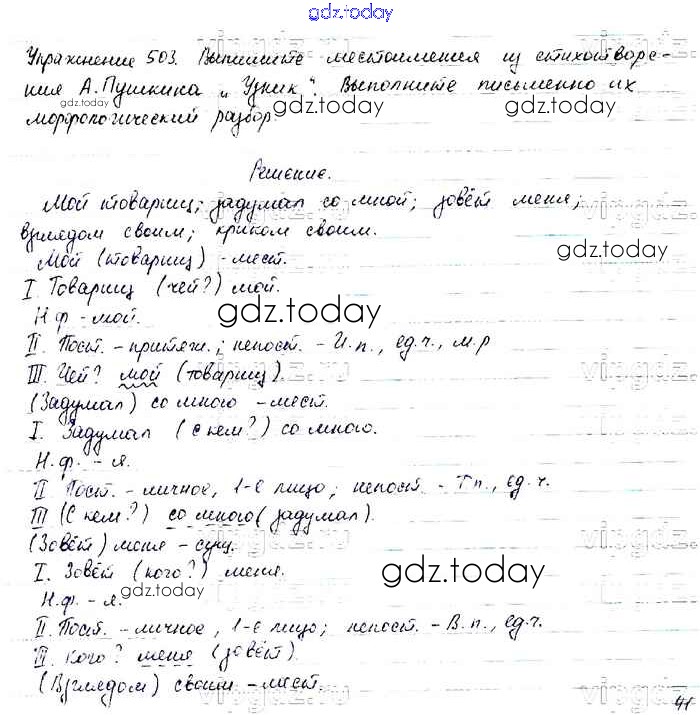 gdz.today
Упражнение 503. Выпишите местоимения из стихотворе-
ния А. Пушкина „Узник". Выполните письменно их
gdz.today gdz.today gdz.today
морфологический разбор.
Решение.
Мой товарищ; задумал со мной; зовёт меня;
взглядом своим; криком своим.
gdz.today
Мой (товарищ) - мест.
I Товарищ (чей?) мой.
gdz.today
Н.ф - мой.
II. Пост. - притяж.; непост. - И.п., ед.ч., м.р
III. Чей? мой (товарищ).
(Задумал) со мною - мест.
gdz.today
I. Задумал (с кем?) со мною.
Н.ф. - я.
II Пост. - личное, 1-е лицо; непост. - Т п., ед.ч.
III (С кем?) со мною (задумал).
(Зовёт) меня - сущ.
I. Зовёт (кого?) меня.
gdz.today
Н.ф. - я.
II. Пост. - личное, 1-е лицо; непост. - В.п., ед.ч.
III. Кого? меня (зовёт).
(Взглядом) своим - мест.
41